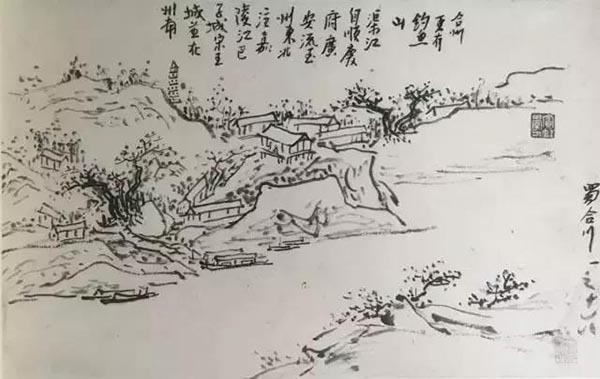 合州
更有
釣魚
山
渠江
自順慶
府廣
安流至
州東北
注嘉
陵江巴
子城宗王
城並在
州南
蜀合川 一之十八